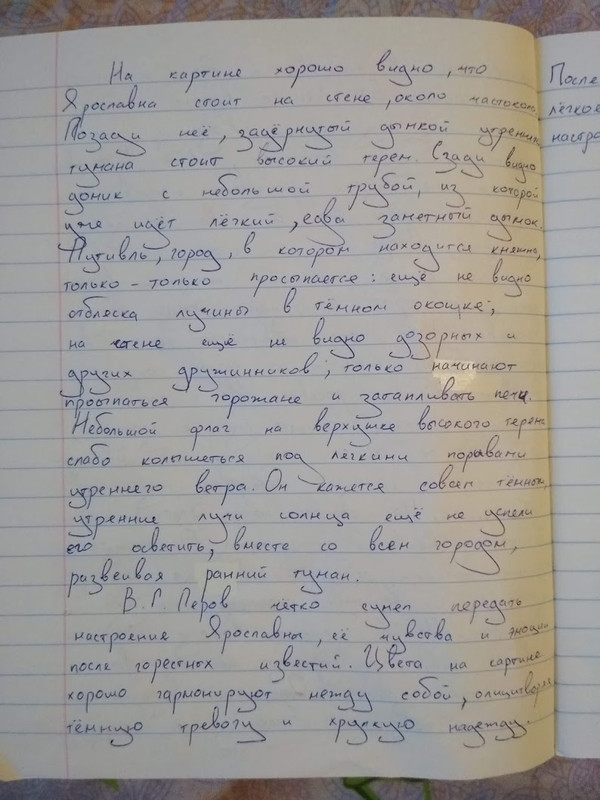 На картине хорошо видно, что
Ярославна стоит на стене, около частокола.
Позади неё, задёрнутый дымкой утренних
тумана стоит высокий терем. Сзади видно
домик с небольшой трубой, из которой
уже идёт лёгкий, едва заметный дымок.
Путивль, город, в котором находится княжна,
только-только просыпается: ещё не видно
отблеска лучины в тёмном окошке;
на стене ещё не видно дозорных и
других дружинников; только начинают
просыпаться горожане и затапливать печи.
Небольшой флаг на верхушке высокого терема
слабо колышеться под лёгкими порывами
утреннего ветра. Он кажется совсем тёмным,
утренние лучи солнца ещё не успели
его осветить, вместе со всем городом,
развеивая ранний туман.
В. Г. Перов чётко сумел передать
настроение Ярославны, её чувства и эмоции
после горестных известий. Цвета на картине
хорошо гармонируют между собой, олицетворяя
тёмную тревогу и хрупкую надежду.
После
лёгкое
настро